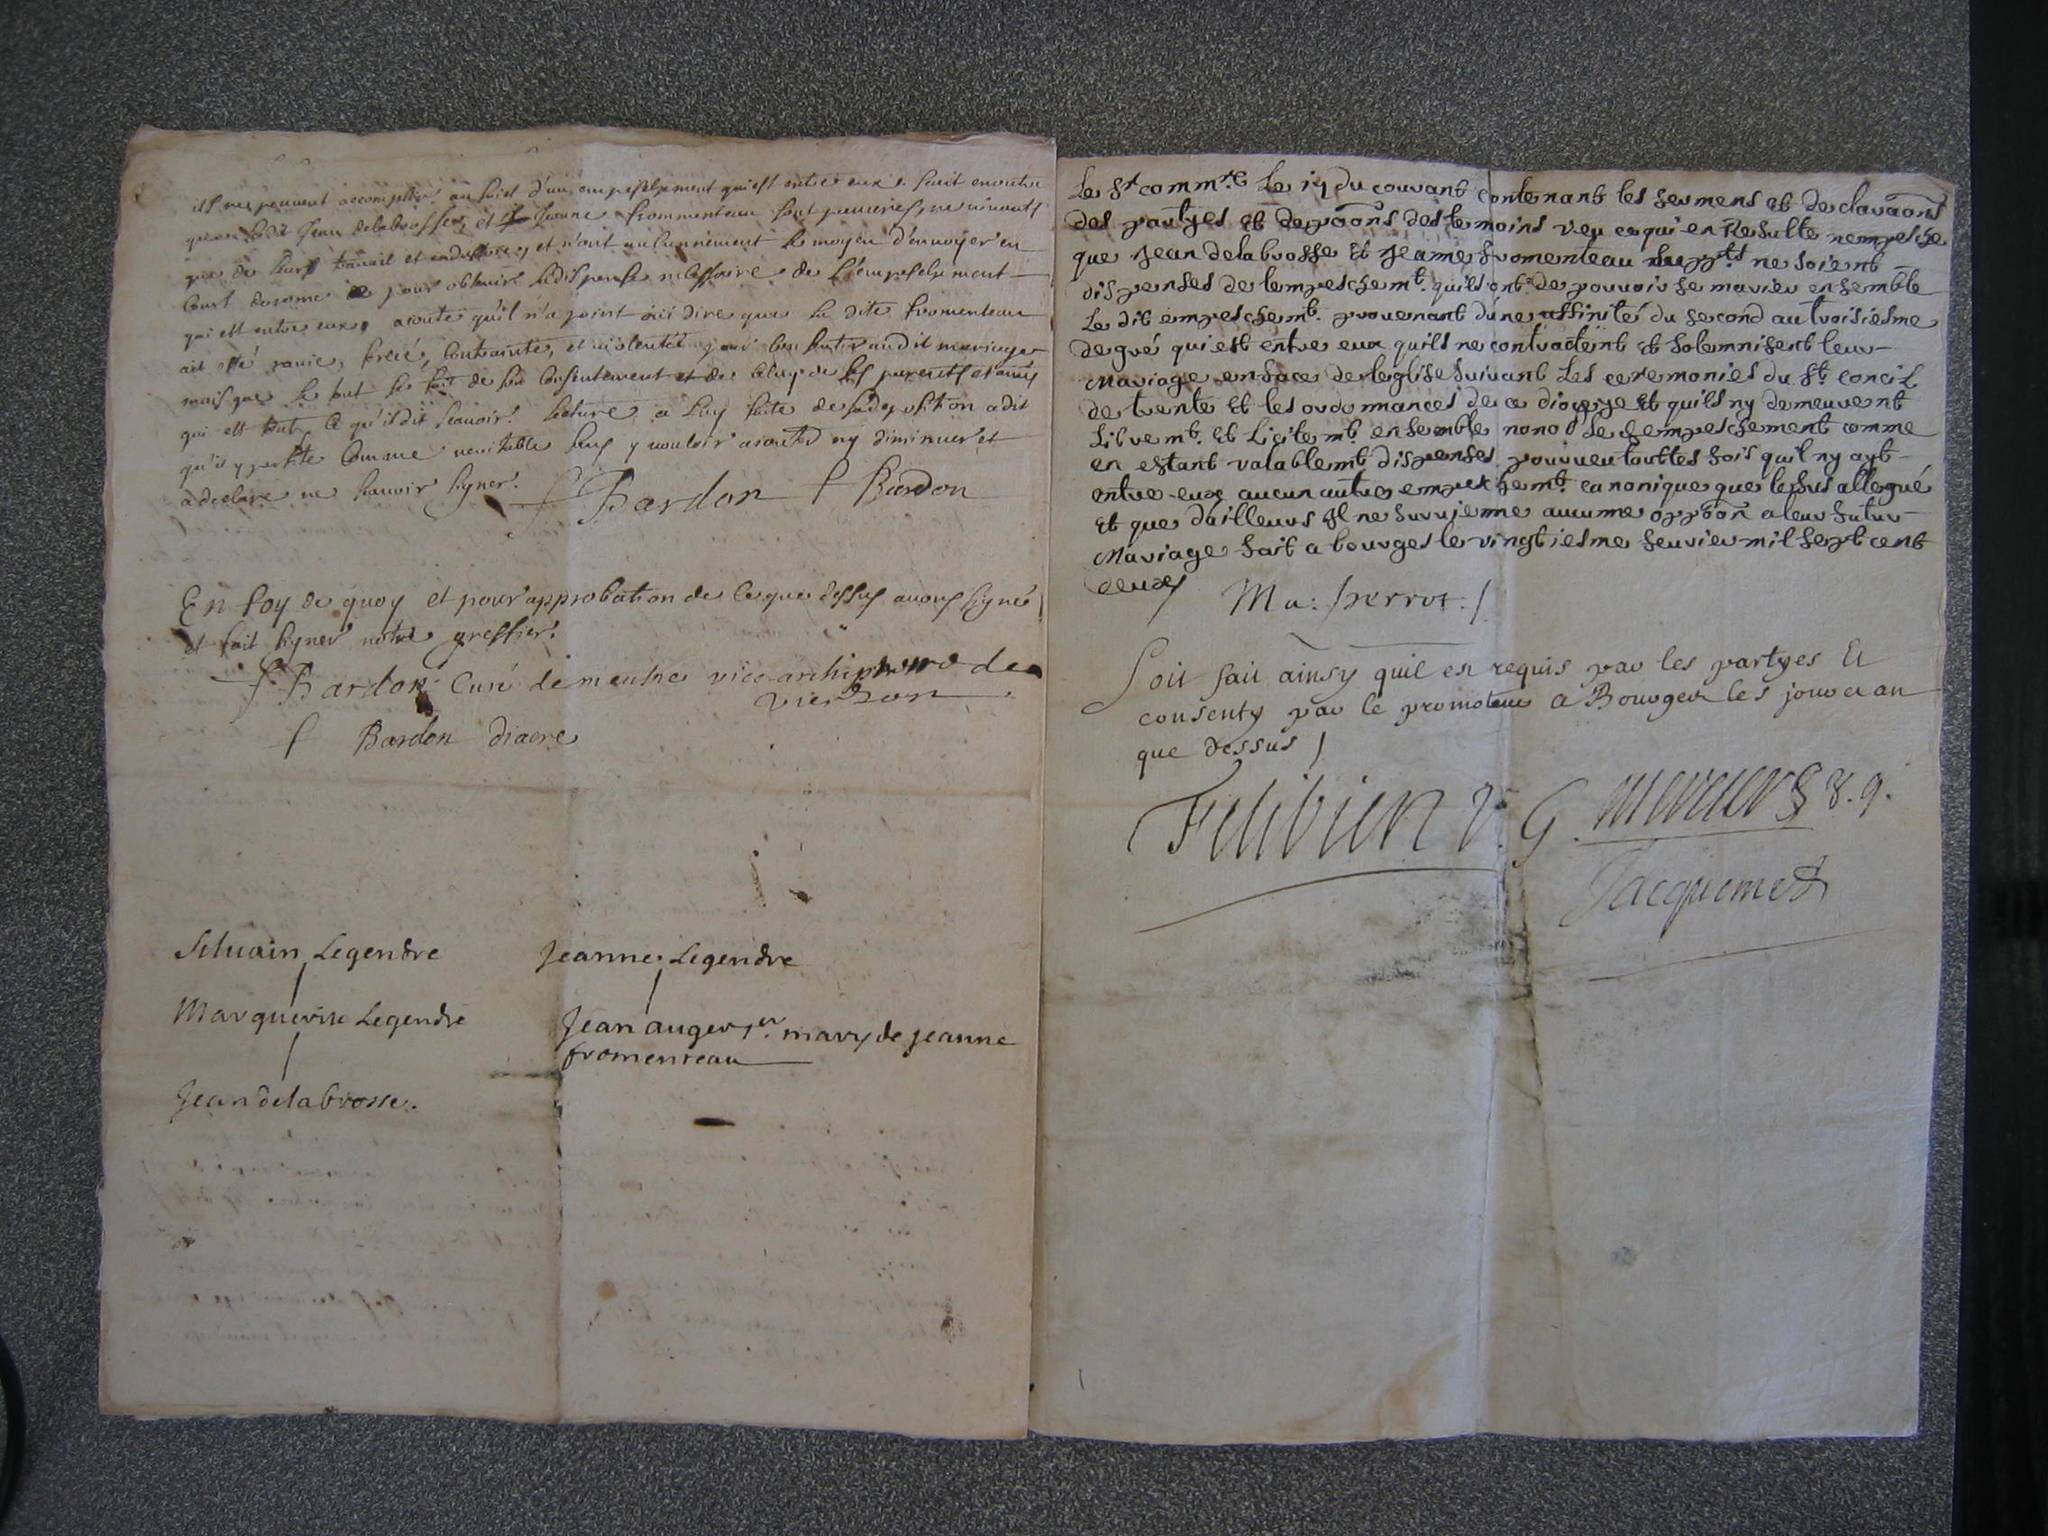 ils ne peuvent accomplir au suiet d'un empeschement qui est entre eux. scait en outre
que led. Jean delabrosse, et Jeanne frommenteau sont pauvres, ne vivants
que de leurs travail et industrie, et n'ont aucunement le moyen d'envoyer en
Court de rome pour obtenir la dispense necessaire de l'empeschement
qui est entre eux, aioute qu'il n'a point oüi dire que la dite fromenteau
ait esté ravie, forcée, Contrainte, et violentée pour Consentir audit mariage
mais que le tout se fait de son Consentement et de Celuy de ses parents et amis
qui est tout Ce qu'il dit scavoir. lecture a luy faite de sa deposition a dit
qu'il y persiste Comme veritable sans y vouloir aiouter ny diminuer et
a declaré ne scavoir signer. f Bardon f Bardon
En foy de quoy et pour approbation de Ce que dessus avons signé
et fait signer notre greffier.
f Bardon Curé de meusne vice-archiprestre de
vierzon
f Bardon diacre
Siluain Legendre Jeanne Legendre
Marguerite Legendre Jean auger 1er. mary de Jeanne
fromenteau
Jean delabrosse.
Le st commre Le 19 du couvant contenant les sermens et declaraons
des partyes et depoons des temoins veu ce qui en Resulte nempesche
que Jean delabrosse et Jeanne fromenteau ne soient
dispenses de lempeschemt. quils ont de pouvoir se marier ensemble
Le dit empeschemt. provenant d'une affinité du second au troisiesme
degré qui est entre eux quils ne contractent et solemnisent leur
Mariage en face de leglise suivant Les ceremonies du st. concil
de trente et les ordonnances de ce diocese et quils ny demeurent
Libremt. et Licitemt. ensemble nonob le dempeschement comme
en estant valablemt. dispenses pourveu touttes fois quil ny ayt
entre eux aucun autre empeschemt. canonique que le sus allegué
et que dailleurs il ne survienne aucune oppoon a leur futur
Mariage fait a bourges le vingtiesme feuvier mil sept cent
deux
Ma: perrot.
Soit fait ainsy quil est requis par les partyes Et
consenty par le promoteur a Bourges les jour et an
que dessus
Felibien V. G. mercier
Jacquemet